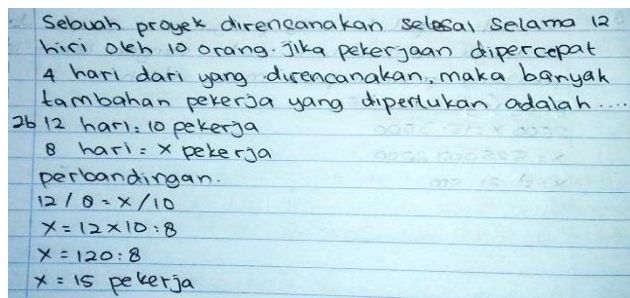 Sebuah proyek direncanakan selesai selama 12
hiri oleh 10 orang. Jika pekerjaan dipercepat
4 hari dari yang direncanakan, maka banyak
tambahan pekerja yang diperlukan adalah ....
26 12 hari = 10 pekerja
8 hari = x pekerja
perbandingan.
12 / 8 = x / 10
x = 12 x 10 : 8
x = 120 : 8
x = 15 pekerja